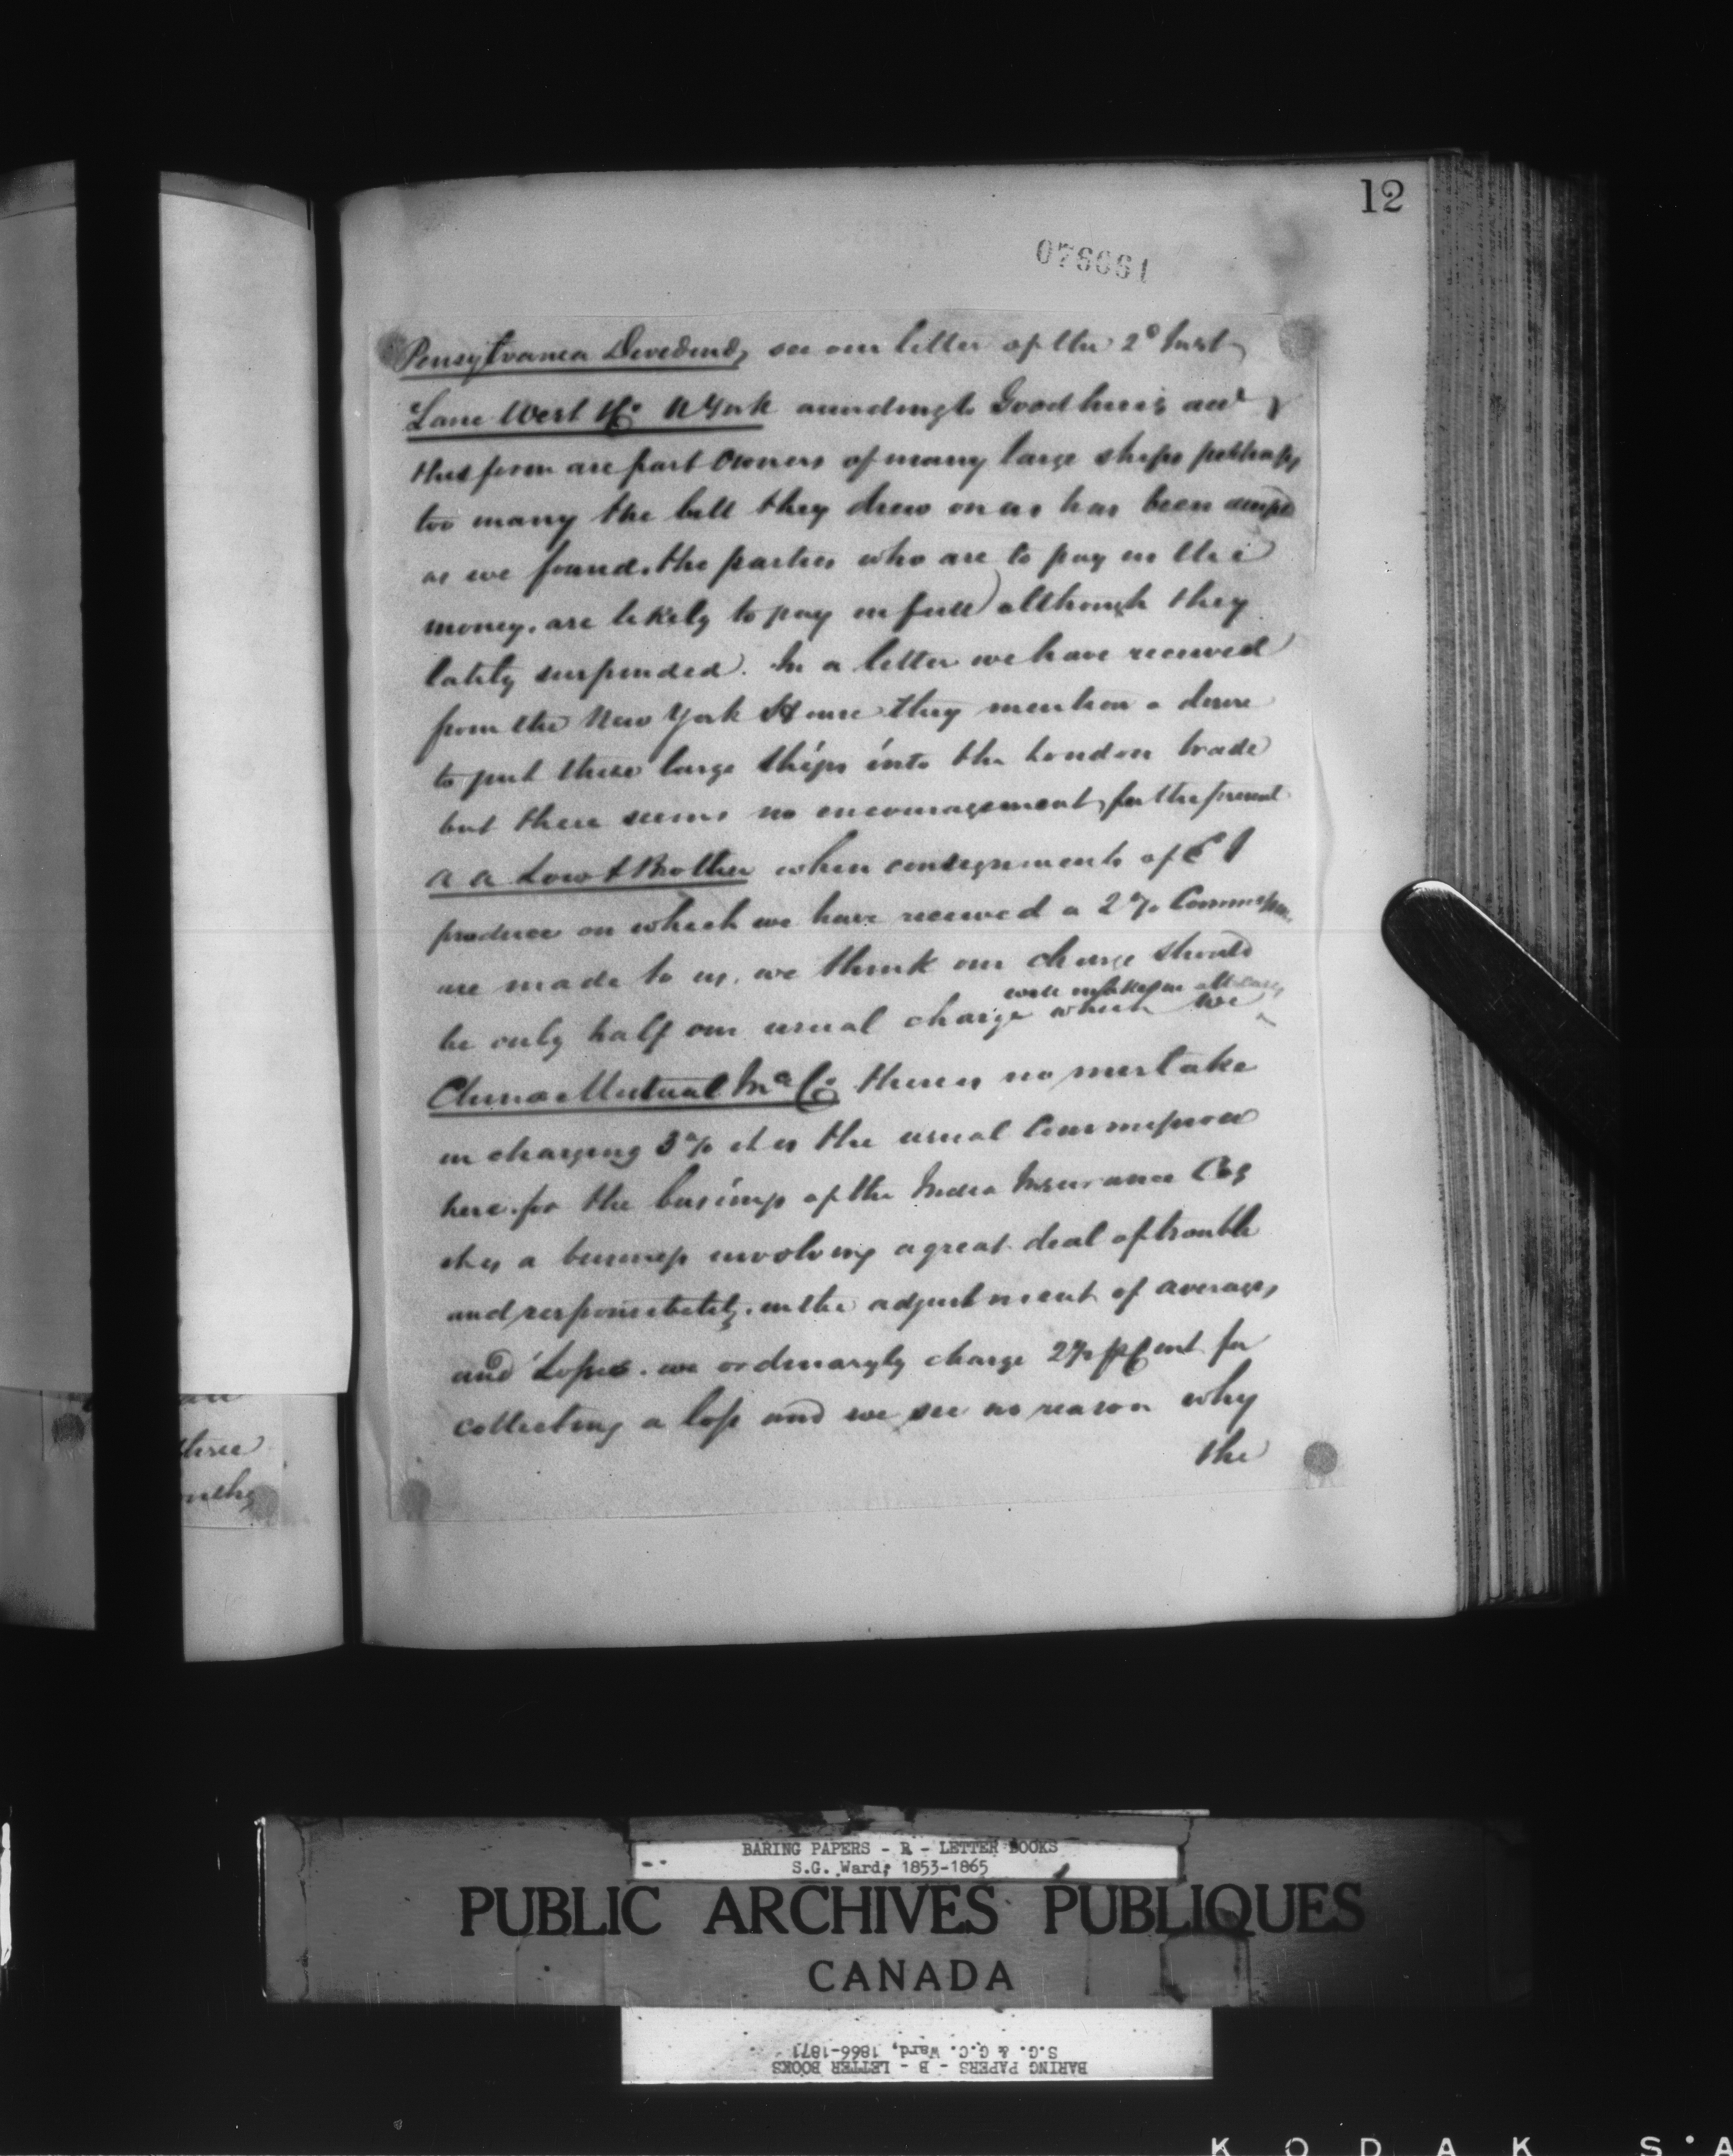 12
076661
Pensylvania Dividend, see our letter of the 2d Inst
Lane West & Co N York according to Goodhue's
this firm are part Owners of many large ships perhaps
too many the bill they drew on us has been
as we found. the parties who are to pay us the
money. are likely to pay in full although they
lately suspended. In a letter we have received
from the New York House they mention a desire
to put these large ships into the London trade
but there seems no encouragement for the present
A A Low & Brother when consignments of E I
produce on which we have received a 2% Commission
are made to us. we think our charge should
will in all cases
be only half our usual charge which we
China Mutual Ince Co. there is no mistake
in charging 3% it is the usual Commission
here for the business of the India Insurance Cos
it is a business involving a great deal of trouble
and responsibility. in the adjustment of averages
and Losses. we ordinaryly charge 2% pCent for
collecting a loss and we see no reason why
the
three
BARING PAPERS - B - LETTER BOOKS
S.G. Ward; 1853-1865
PUBLIC ARCHIVES PUBLIQUES
CANADA
BARING PAPERS - B - LETTER BOOKS
S.G. & G.C. Ward, 1866-1871
KODAK S·A